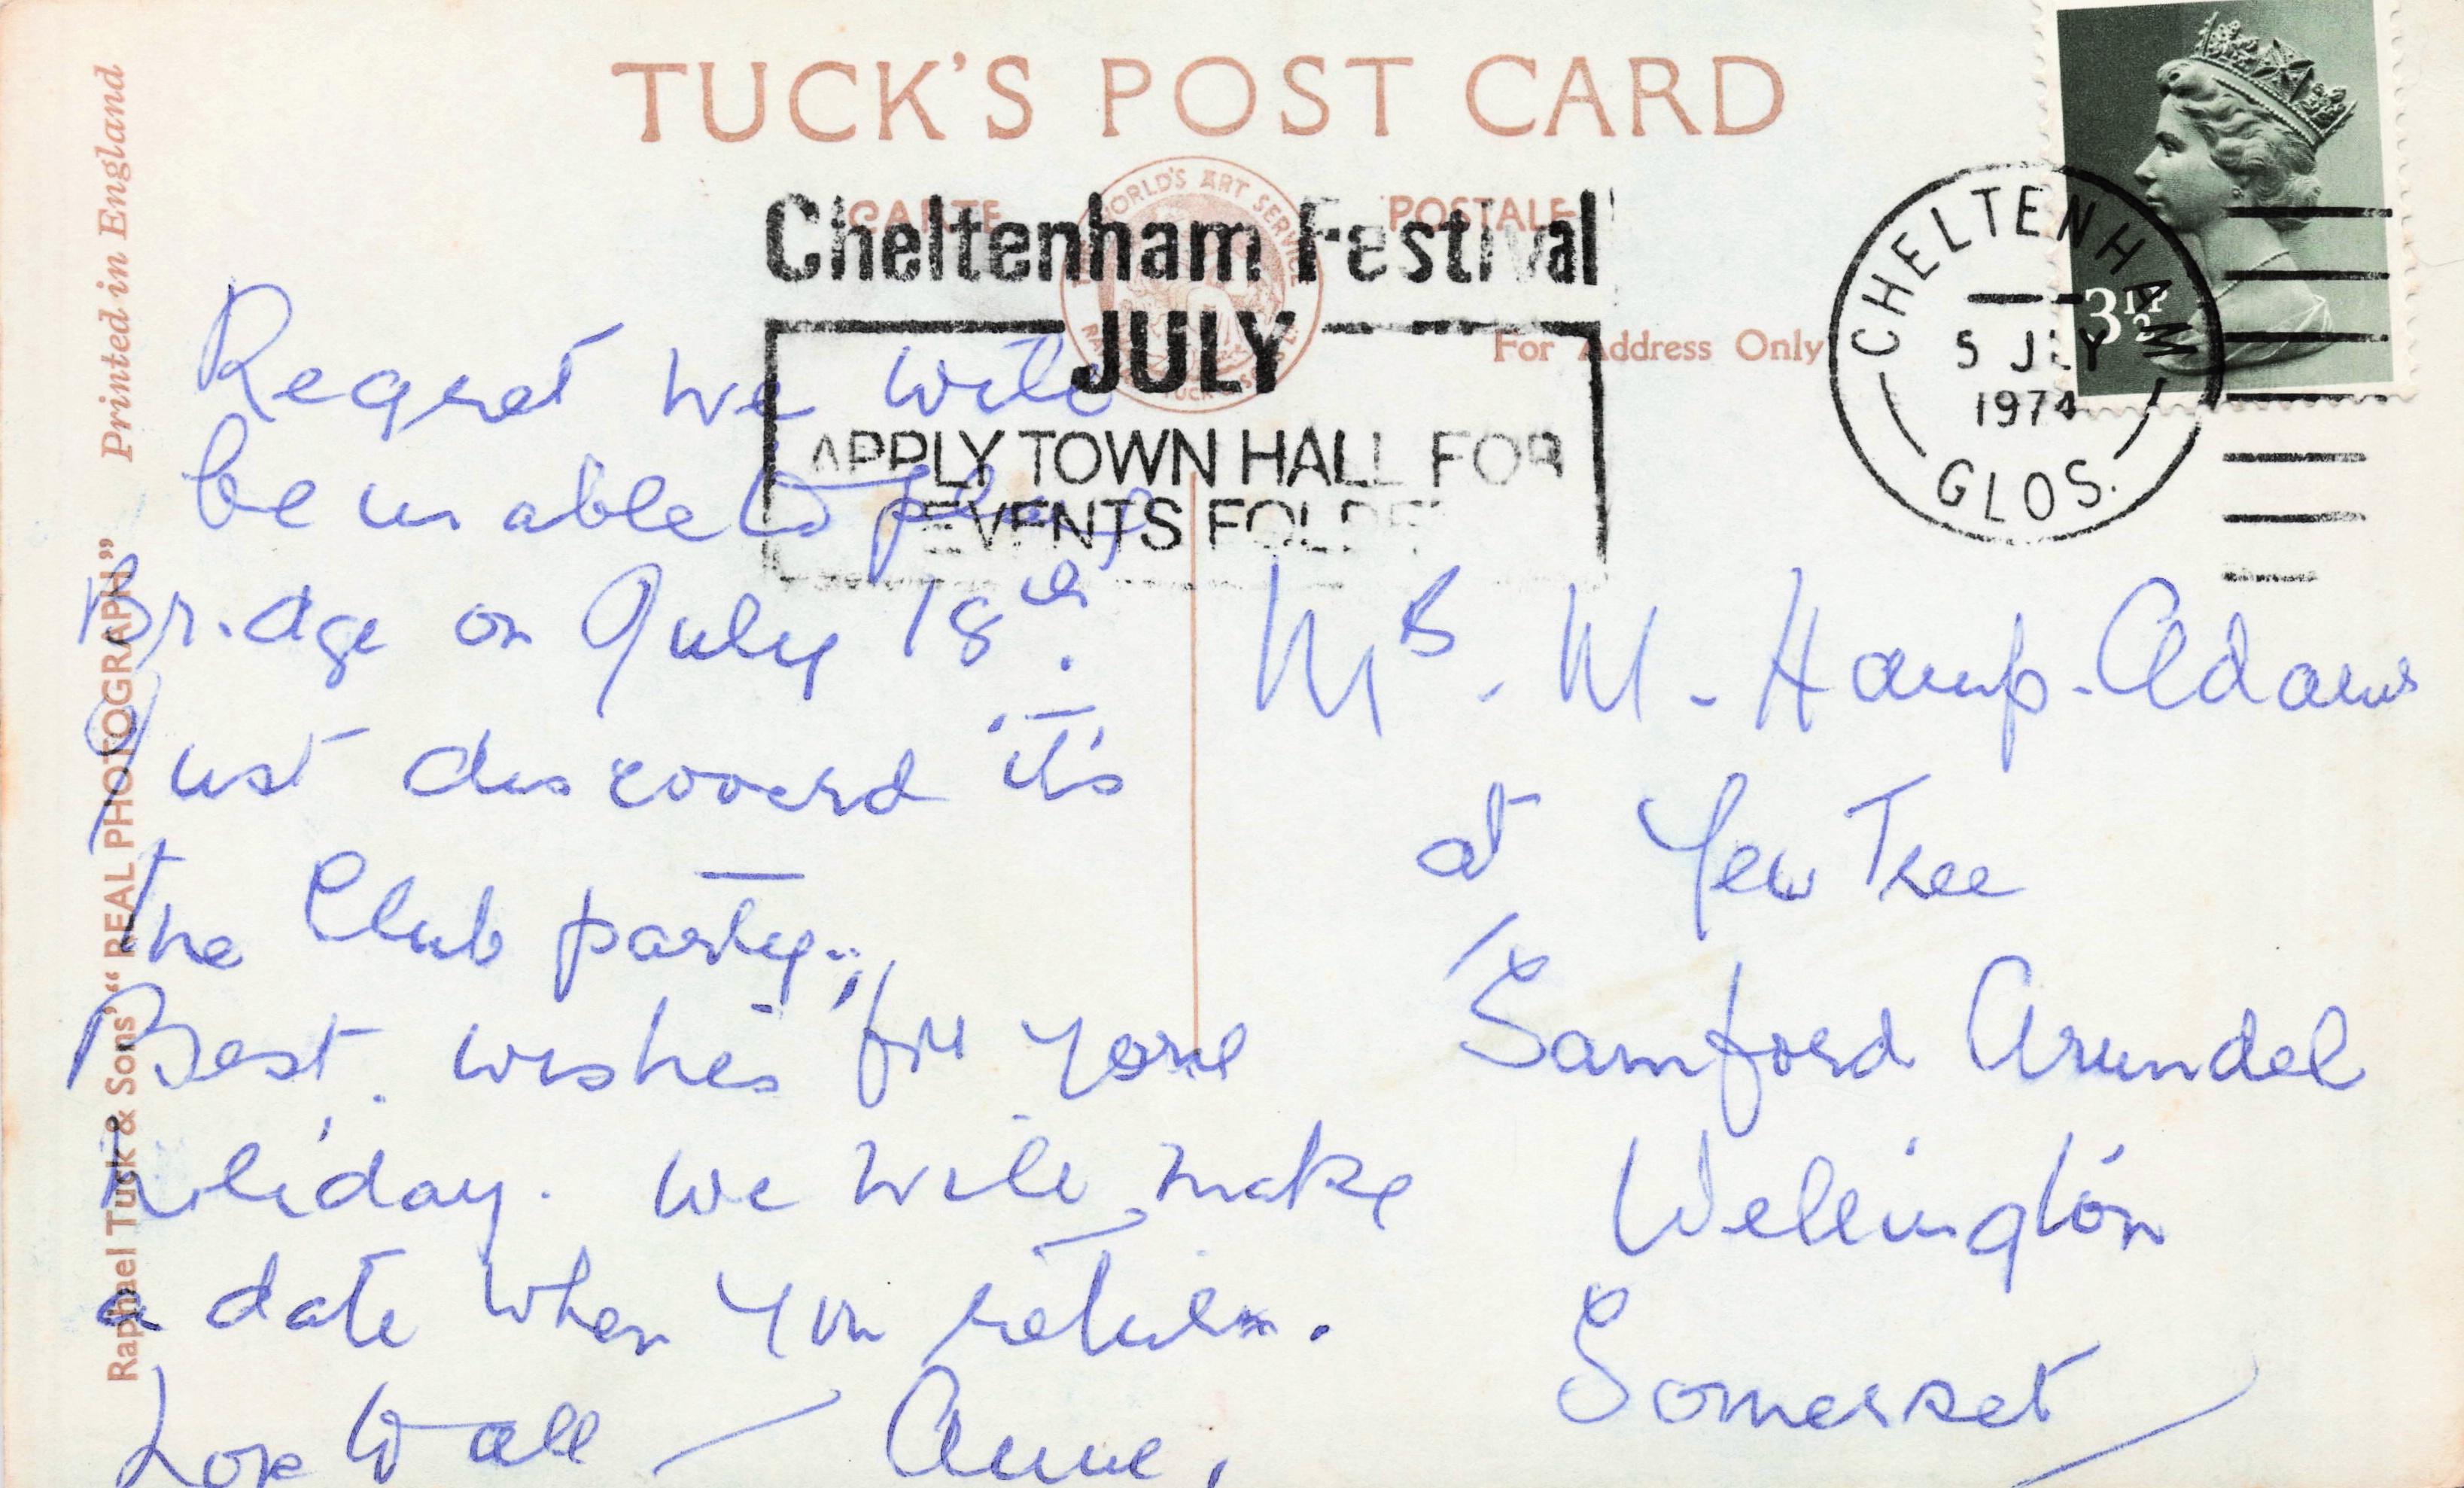 TUCK'S POST CARD
CARTE POSTALE
Cheltenham Festival
JULY
APPLY TOWN HALL FOR
EVENTS FOLDER
For Address Only
CHELTENHAM
5 JLY
1974
GLOS.
3½P
Printed in England
Raphael Tuck & Sons' "REAL PHOTOGRAPH"
WORLD'S ART SERVICE
Regret we will
be unable to play
Bridge on July 18th.
Just discoverd it's
the Club party.
Best wishes for your
holiday. We will make
a date when you return.
Love to all Anne.
Mrs. M. Hamp-Adams
at Yew Tree
Samford Arundel
Wellington
Somerset